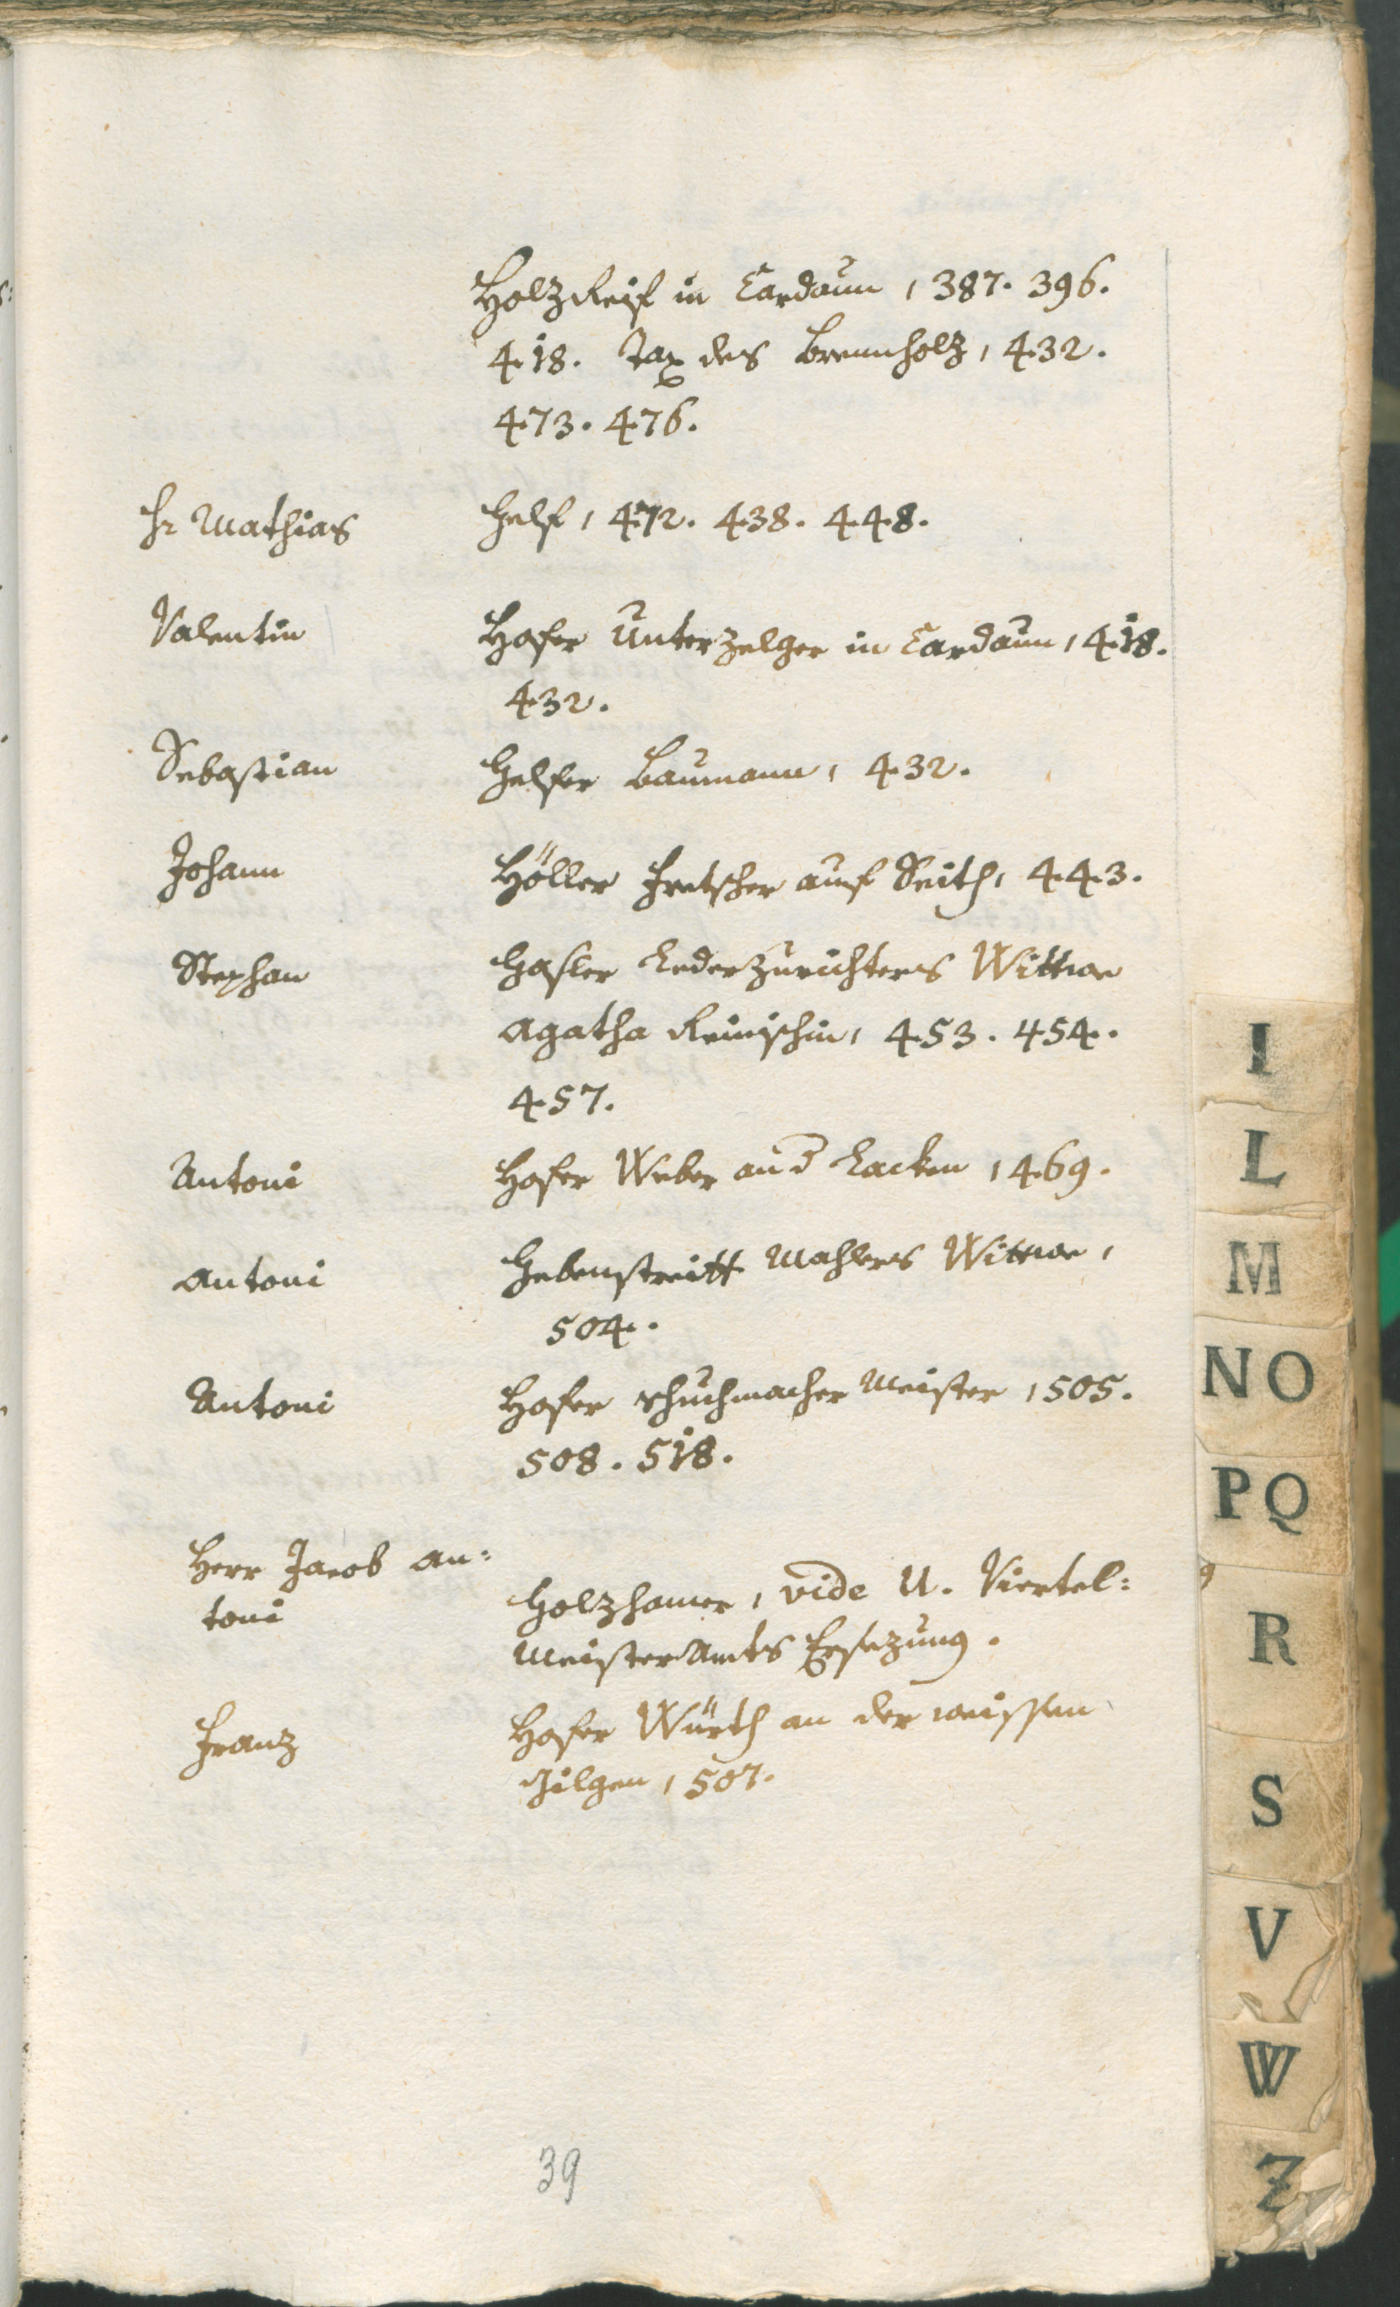 Holzreif in Cardaun, 387. 396.
418. Tax des Brennholz, 432.
473. 476.
Hr Mathias Helf, 412. 438. 448.
Valentin Hofer Unterzelger in Cardaun, 418.
432.
Sebastian Helfer Baumann, 432.
Johann Höller Fretscher auf Seith, 443.
Stephan Hasler Lederzurichters Wittwe
Agatha Reinischin, 453. 454.
457.
Antoni Hofer Weber an d Lacken, 469.
Antoni Hebenstreitt Mahlers Wittwe,
504.
Antoni Hofer Schuchmacher Meister, 505.
508. 518.
Herr Jacob An=
toni Holzhamer, vide U. Viertel=
Meister Amts Ersezung.
Franz Hofer Würth an der weissen
Gilgen, 507.
39
I
L
M
NO
PQ
R
S
V
W
Z